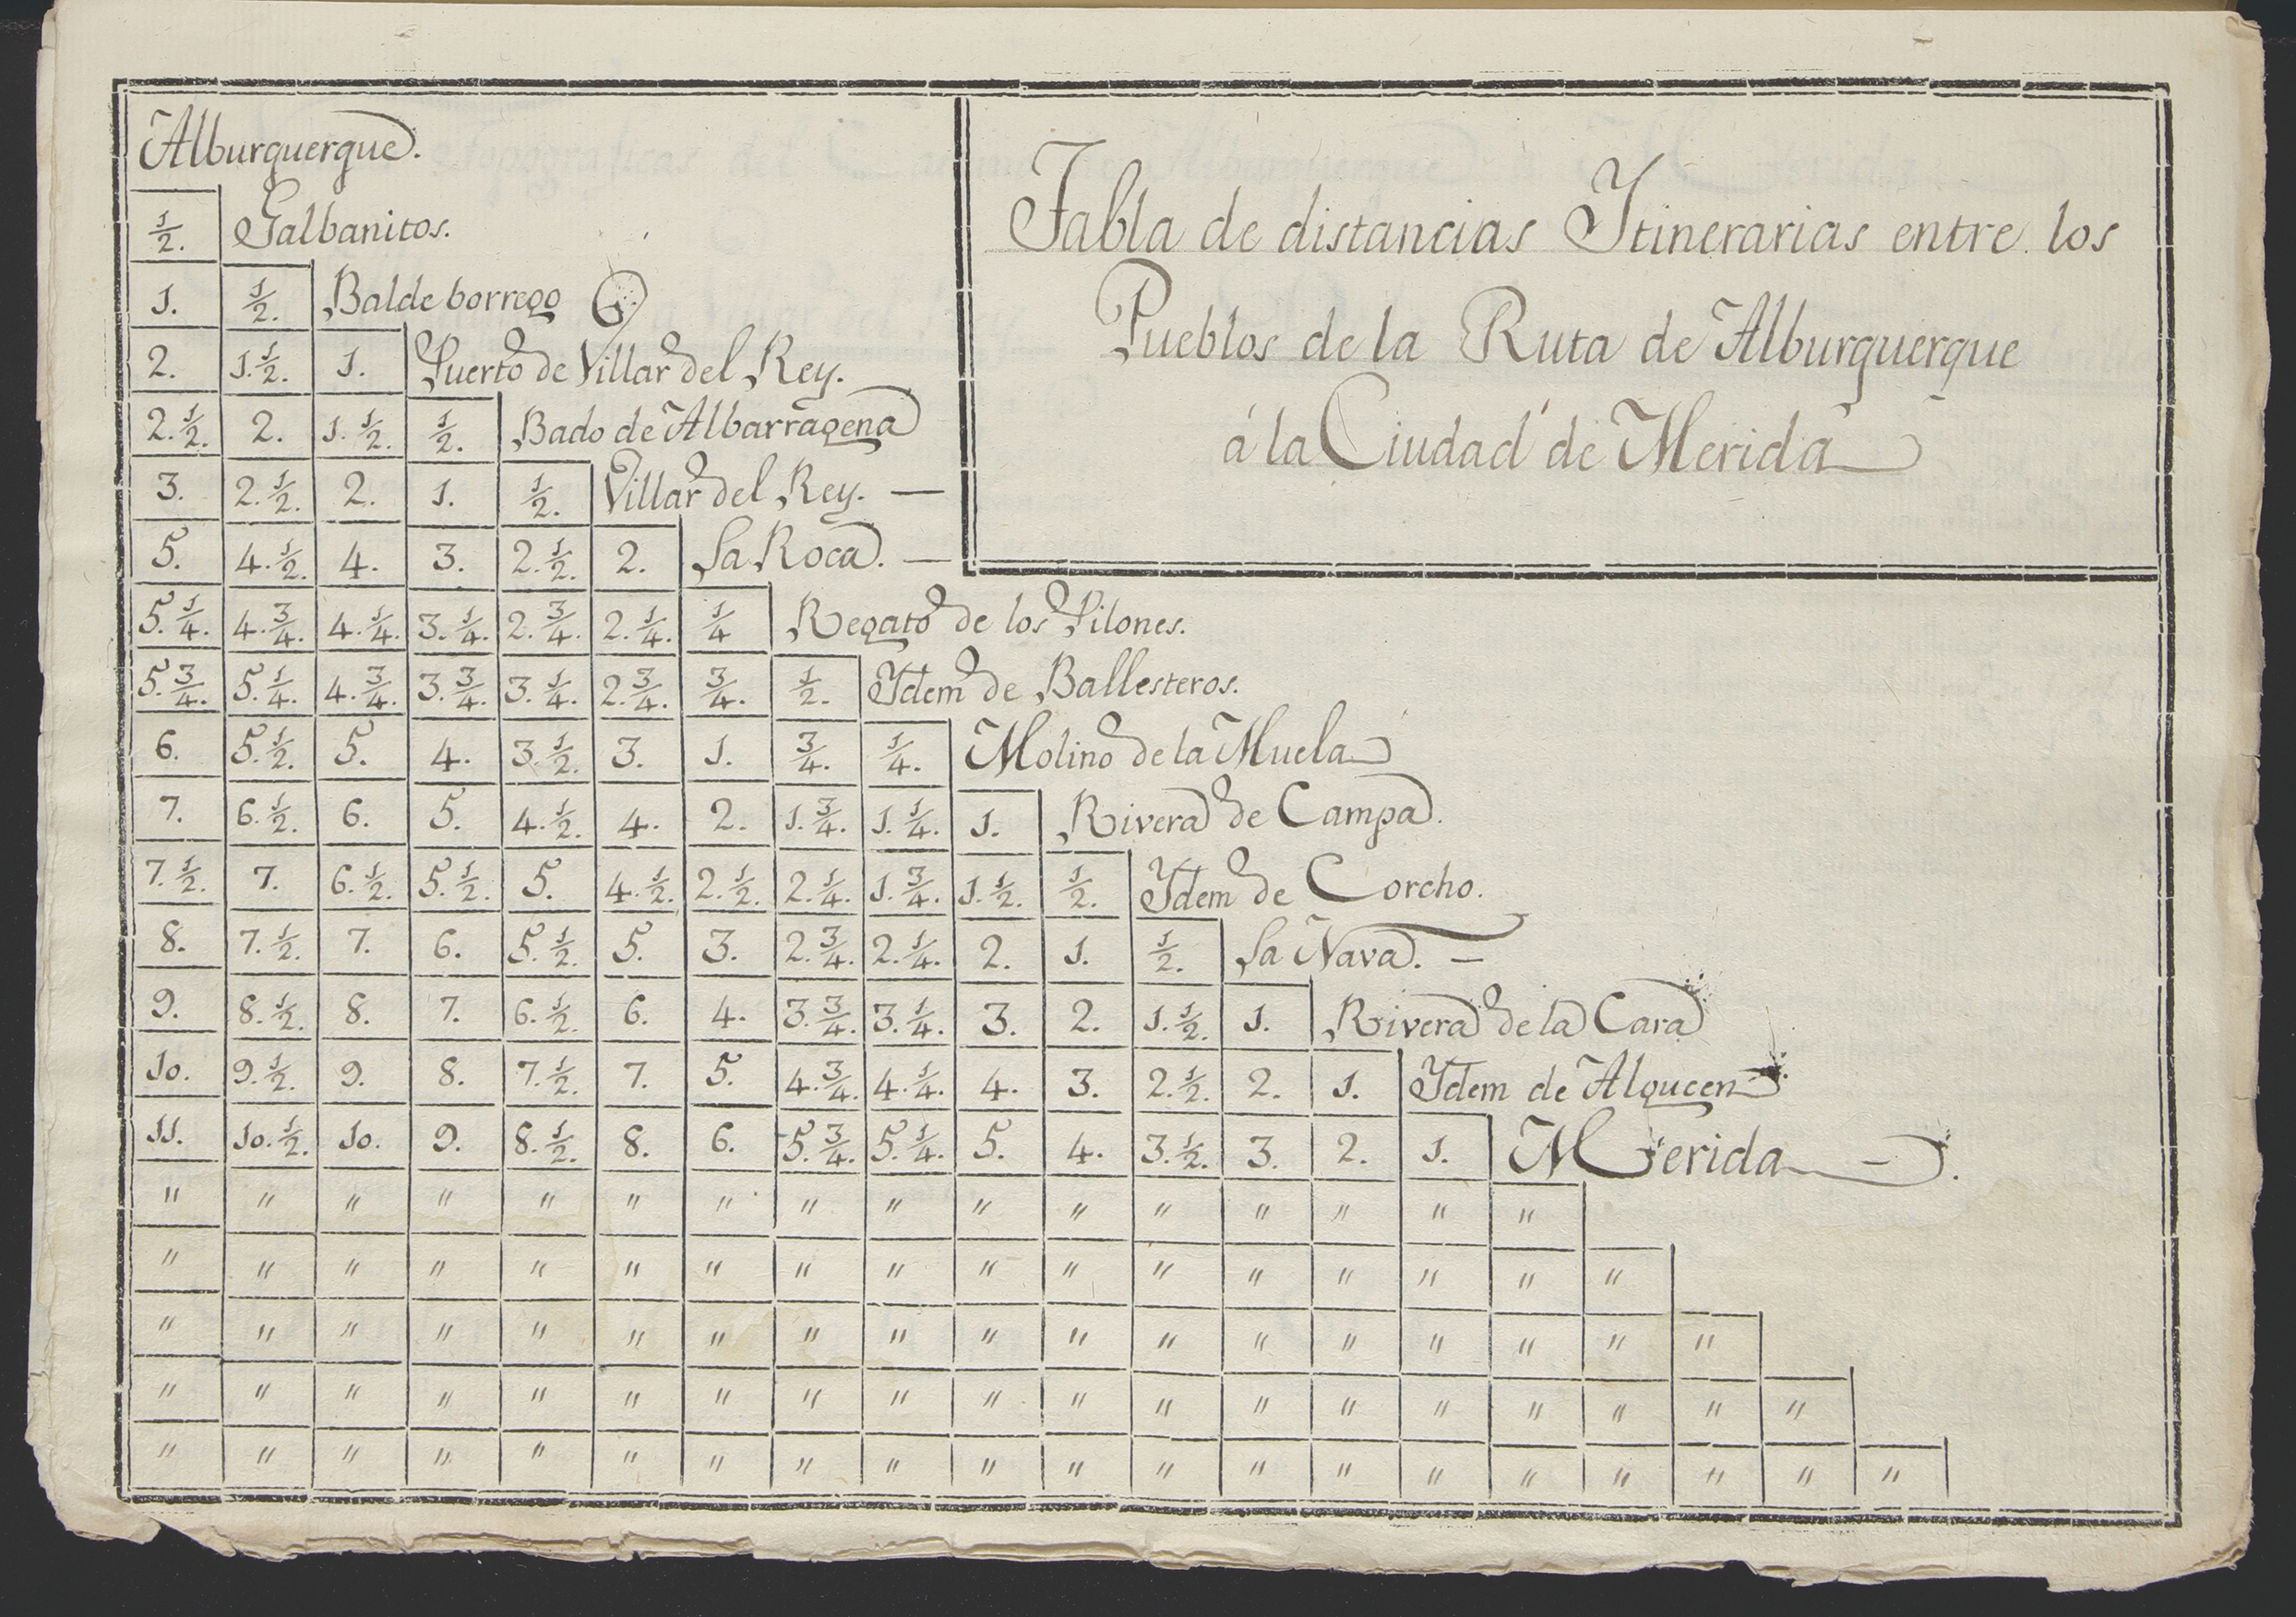 Alburquerque.
Tabla de distancias Ytinerarias entre los
Pueblos de la Ruta de Alburquerque
á la Ciudad de Merida
1/2. Galbanitos.
1. 1/2. Balde borrego
2. 1.1/2. 1. Puerto de Villar del Rey.
2.1/2. 2. 1.1/2. 1/2. Bado de Albarragena
3. 2.1/2. 2. 1. 1/2. Villar del Rey. —
5. 4.1/2. 4. 3. 2.1/2. 2. La Roca. —
5.1/4. 4.3/4. 4.1/4. 3.1/4. 2.3/4. 2.1/4. 1/4 Regato de los Pilones.
5.3/4. 5.1/4. 4.3/4. 3.3/4. 3.1/4. 2.3/4. 3/4. 1/2. Ydem de Ballesteros.
6. 5.1/2. 5. 4. 3.1/2. 3. 1. 3/4. 1/4. Molino de la Muela
7. 6.1/2. 6. 5. 4.1/2. 4. 2. 1.3/4. 1.1/4. 1. Rivera de Campa.
7.1/2. 7. 6.1/2. 5.1/2. 5. 4.1/2. 2.1/2. 2.1/4. 1.3/4. 1.1/2. 1/2. Ydem de Corcho.
8. 7.1/2. 7. 6. 5.1/2. 5. 3. 2.3/4. 2.1/4. 2. 1. 1/2. La Nava. —
9. 8.1/2. 8. 7. 6.1/2. 6. 4. 3.3/4. 3.1/4. 3. 2. 1.1/2. 1. Rivera de la Cara
10. 9.1/2. 9. 8. 7.1/2. 7. 5. 4.3/4. 4.1/4. 4. 3. 2.1/2. 2. 1. Ydem de Alqucen
11. 10.1/2. 10. 9. 8.1/2. 8. 6. 5.3/4. 5.1/4. 5. 4. 3.1/2. 3. 2. 1. Merida — .
" " " " " " " " " " " " " " " "
" " " " " " " " " " " " " " " " "
" " " " " " " " " " " " " " " " " "
" " " " " " " " " " " " " " " " " " "
" " " " " " " " " " " " " " " " " " " "